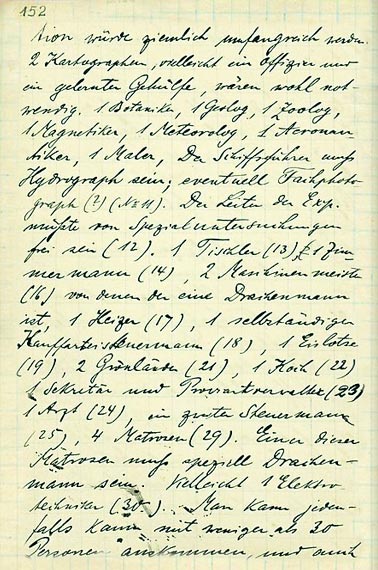 152
tion würde ziemlich umfangreich werden.
2 Kartographen, vielleicht ein Offizier und
ein gelernter Gehülfe, wären wohl not-
wendig. 1 Botaniker, 1 Geolog, 1 Zoolog,
1 Magnetiker, 1 Meteorolog, 1 Aeronau
tiker, 1 Maler, Der Schiffsführer muss
Hydrograph sein; eventuell Fachphoto-
graph (?) (No 11). Der Leiter der Exp.
müsste von Spezialuntersuchungen
frei sein (12). 1 Tischler (13) 1 Zim
mermann (14), 2 Maschinenmeister
(16) von denen der eine Drachenmann
ist, 1 Heizer (17), 1 selbständiger
Kauffarteisteuermann (18), 1 Eislotse
(19), 2 Grönländer (21), 1 Koch (22)
1 Sekretär und Proviantverwalter (23)
1 Arzt (24), ein zweiter Steuermann
(25), 4 Matrosen (29). Einer dieser
Matrosen muss speziell Drachen-
mann sein. Vielleicht 1 Elektro
techniker (30). Man kann jeden-
falls kaum mit weniger als 30
Personen auskommen, und auch